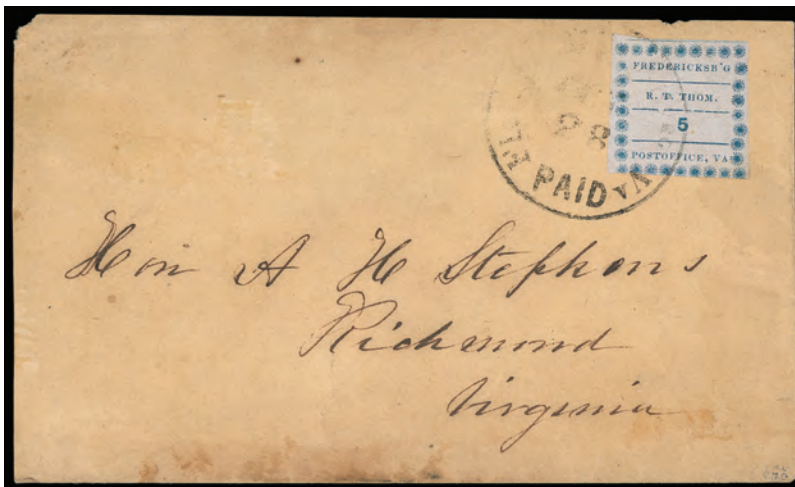 FREDERICKSB'G
R. T. THOM.
5
POSTOFFICE, VA
28
PAID
VA
Hon A H Stephens
Richmond
Virginia